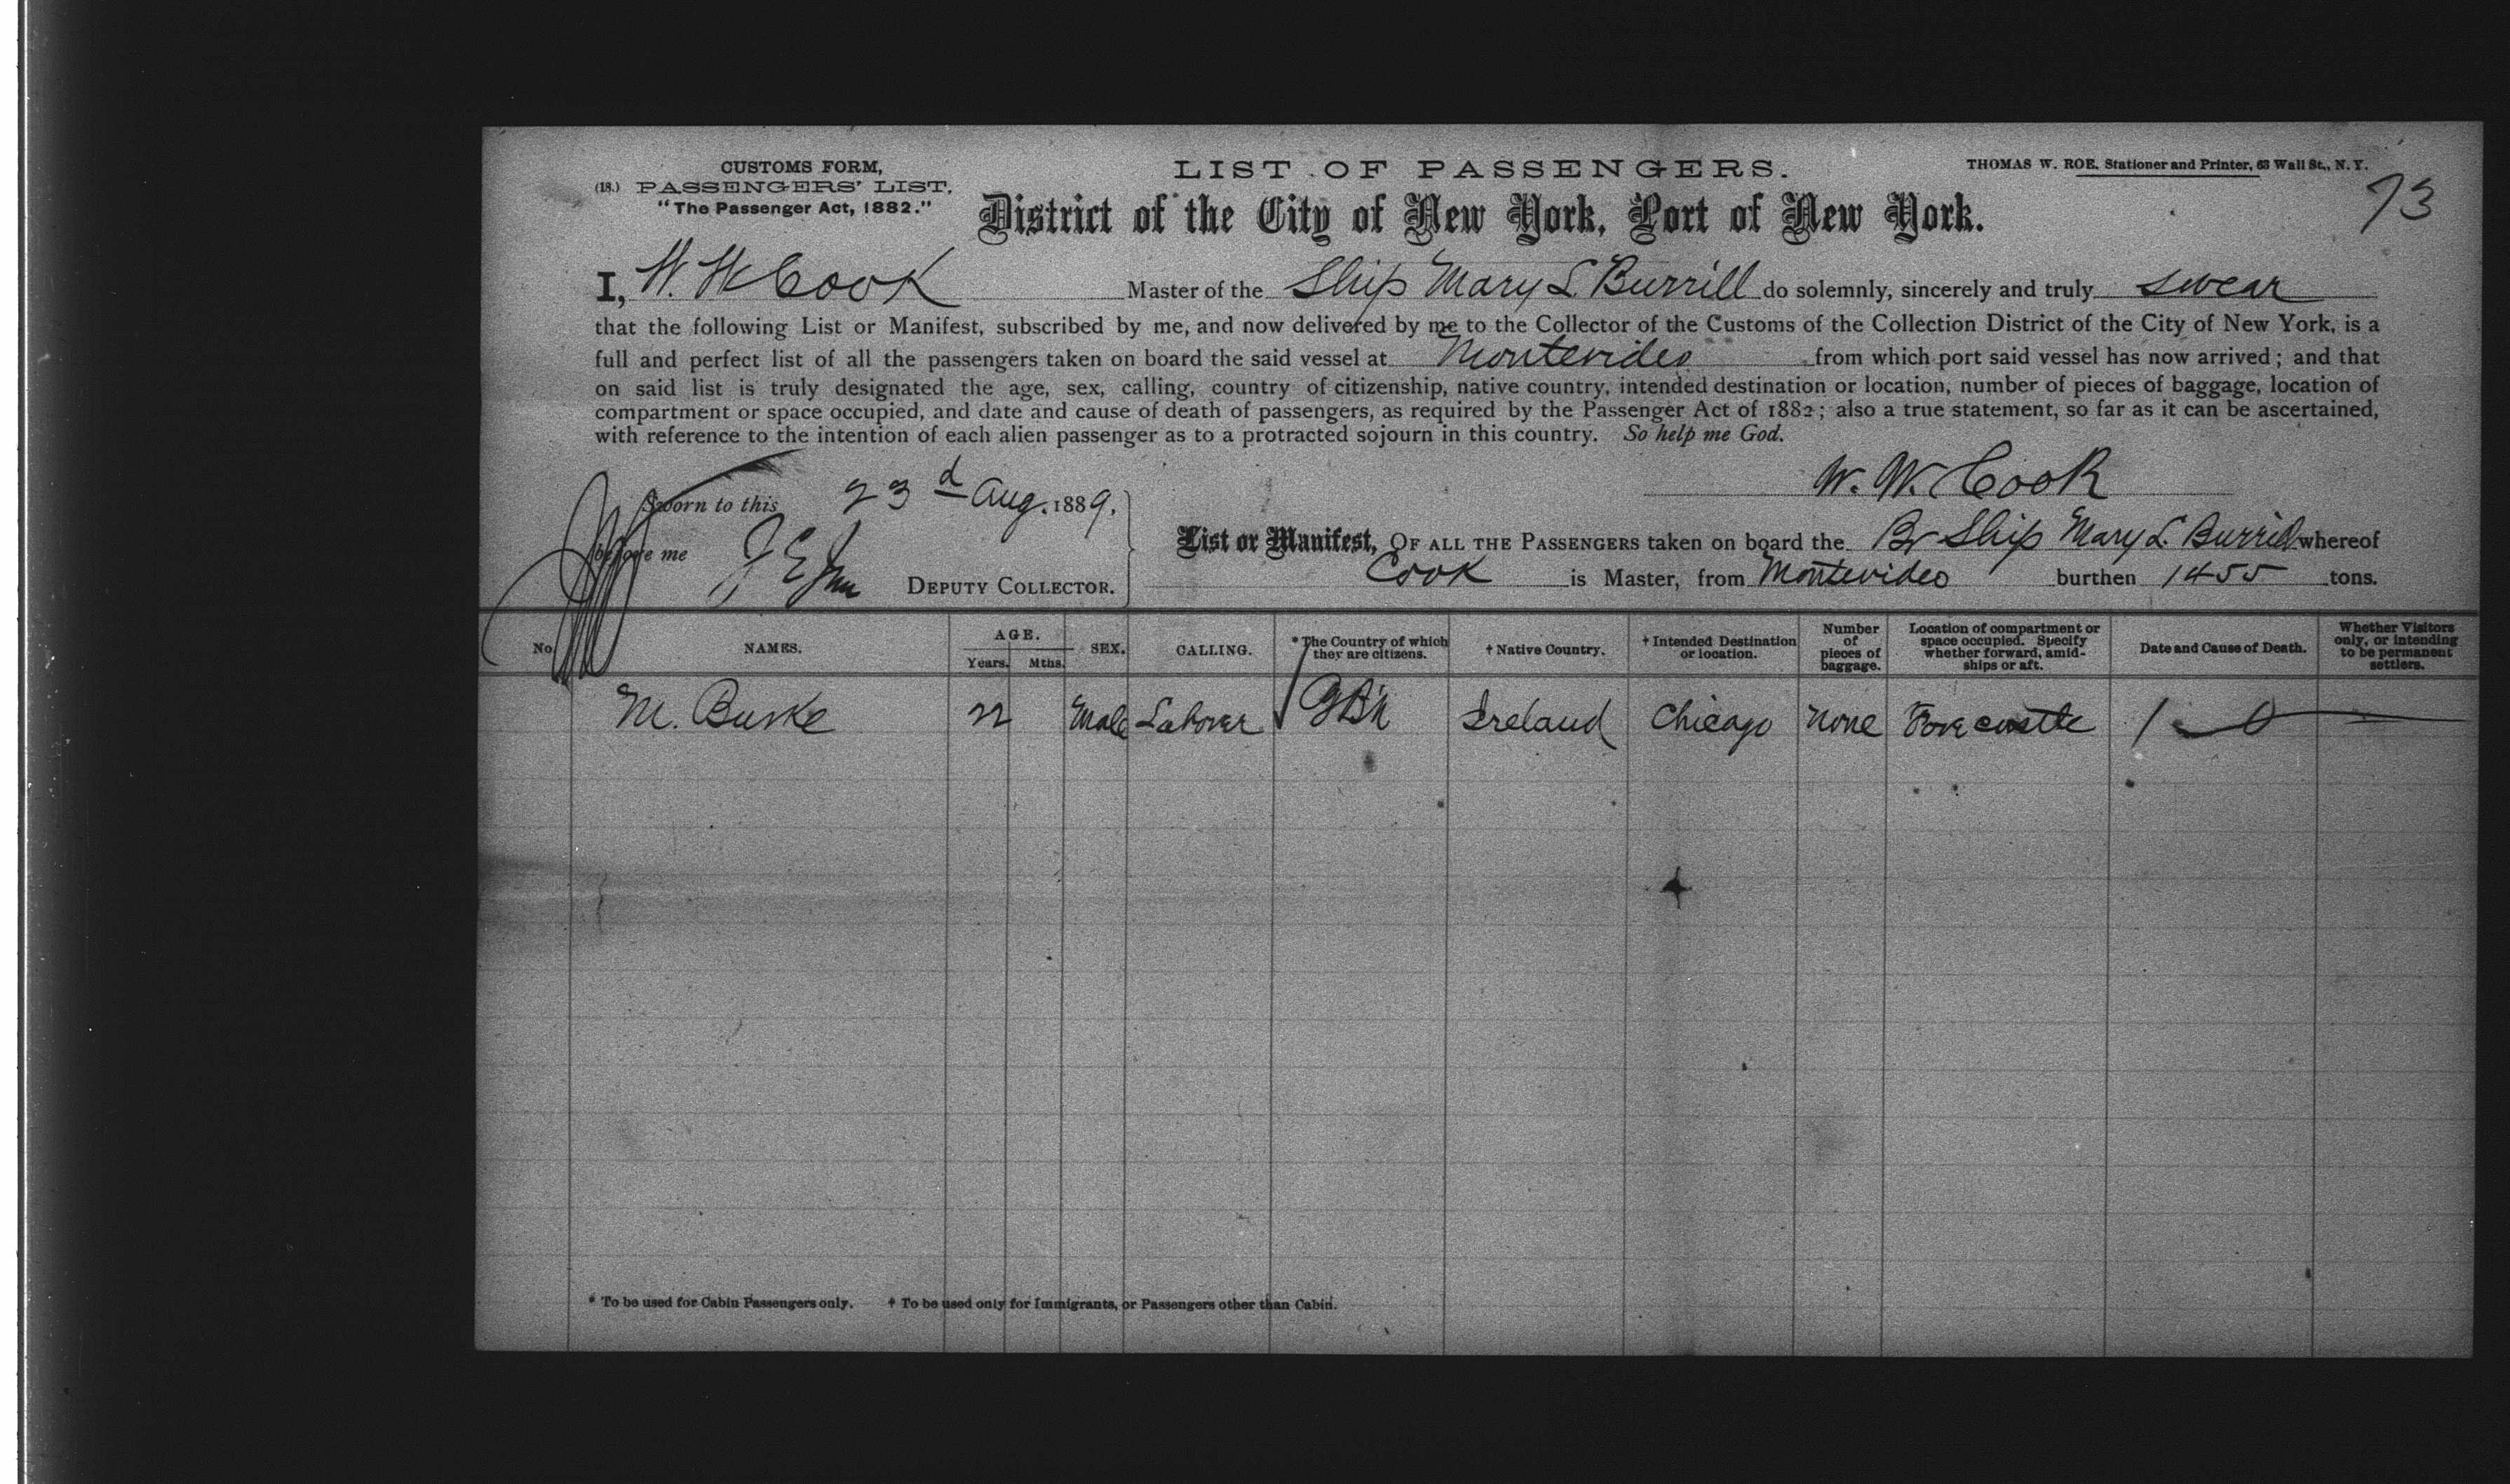 CUSTOMS FORM,
(18.) PASSENGERS' LIST.
"The Passenger Act, 1882."
LIST OF PASSENGERS.
THOMAS W. ROE, Stationer and Printer, 63 Wall St., N. Y.
73
District of the City of New York, Port of New York.
I, W. W Cook Master of the Ship Mary L. Burrill do solemnly, sincerely and truly swear
that the following List or Manifest, subscribed by me, and now delivered by me to the Collector of the Customs of the Collection District of the City of New York, is a
full and perfect list of all the passengers taken on board the said vessel at Montevideo from which port said vessel has now arrived; and that
on said list is truly designated the age, sex, calling, country of citizenship, native country, intended destination or location, number of pieces of baggage, location of
compartment or space occupied, and date and cause of death of passengers, as required by the Passenger Act of 1882; also a true statement, so far as it can be ascertained,
with reference to the intention of each alien passenger as to a protracted sojourn in this country. So help me God.
W. W. Cook
Sworn to this 23d Aug. 1889.
before me
DEPUTY COLLECTOR.
List or Manifest, OF ALL THE PASSENGERS taken on board the Br Ship Mary L. Burrill whereof
Cook is Master, from Montevideo burthen 1455 tons.
No. NAMES. AGE. Years. Mths. SEX. CALLING. * The Country of which they are citizens. † Native Country. † Intended Destination or location. Number of pieces of baggage. Location of compartment or space occupied. Specify whether forward, amidships or aft. Date and Cause of Death. Whether Visitors only, or intending to be permanent settlers.
M. Burke 22 Male Laborer Ireland Chicago None Forecastle
* To be used for Cabin Passengers only. † To be used only for Immigrants, or Passengers other than Cabin.